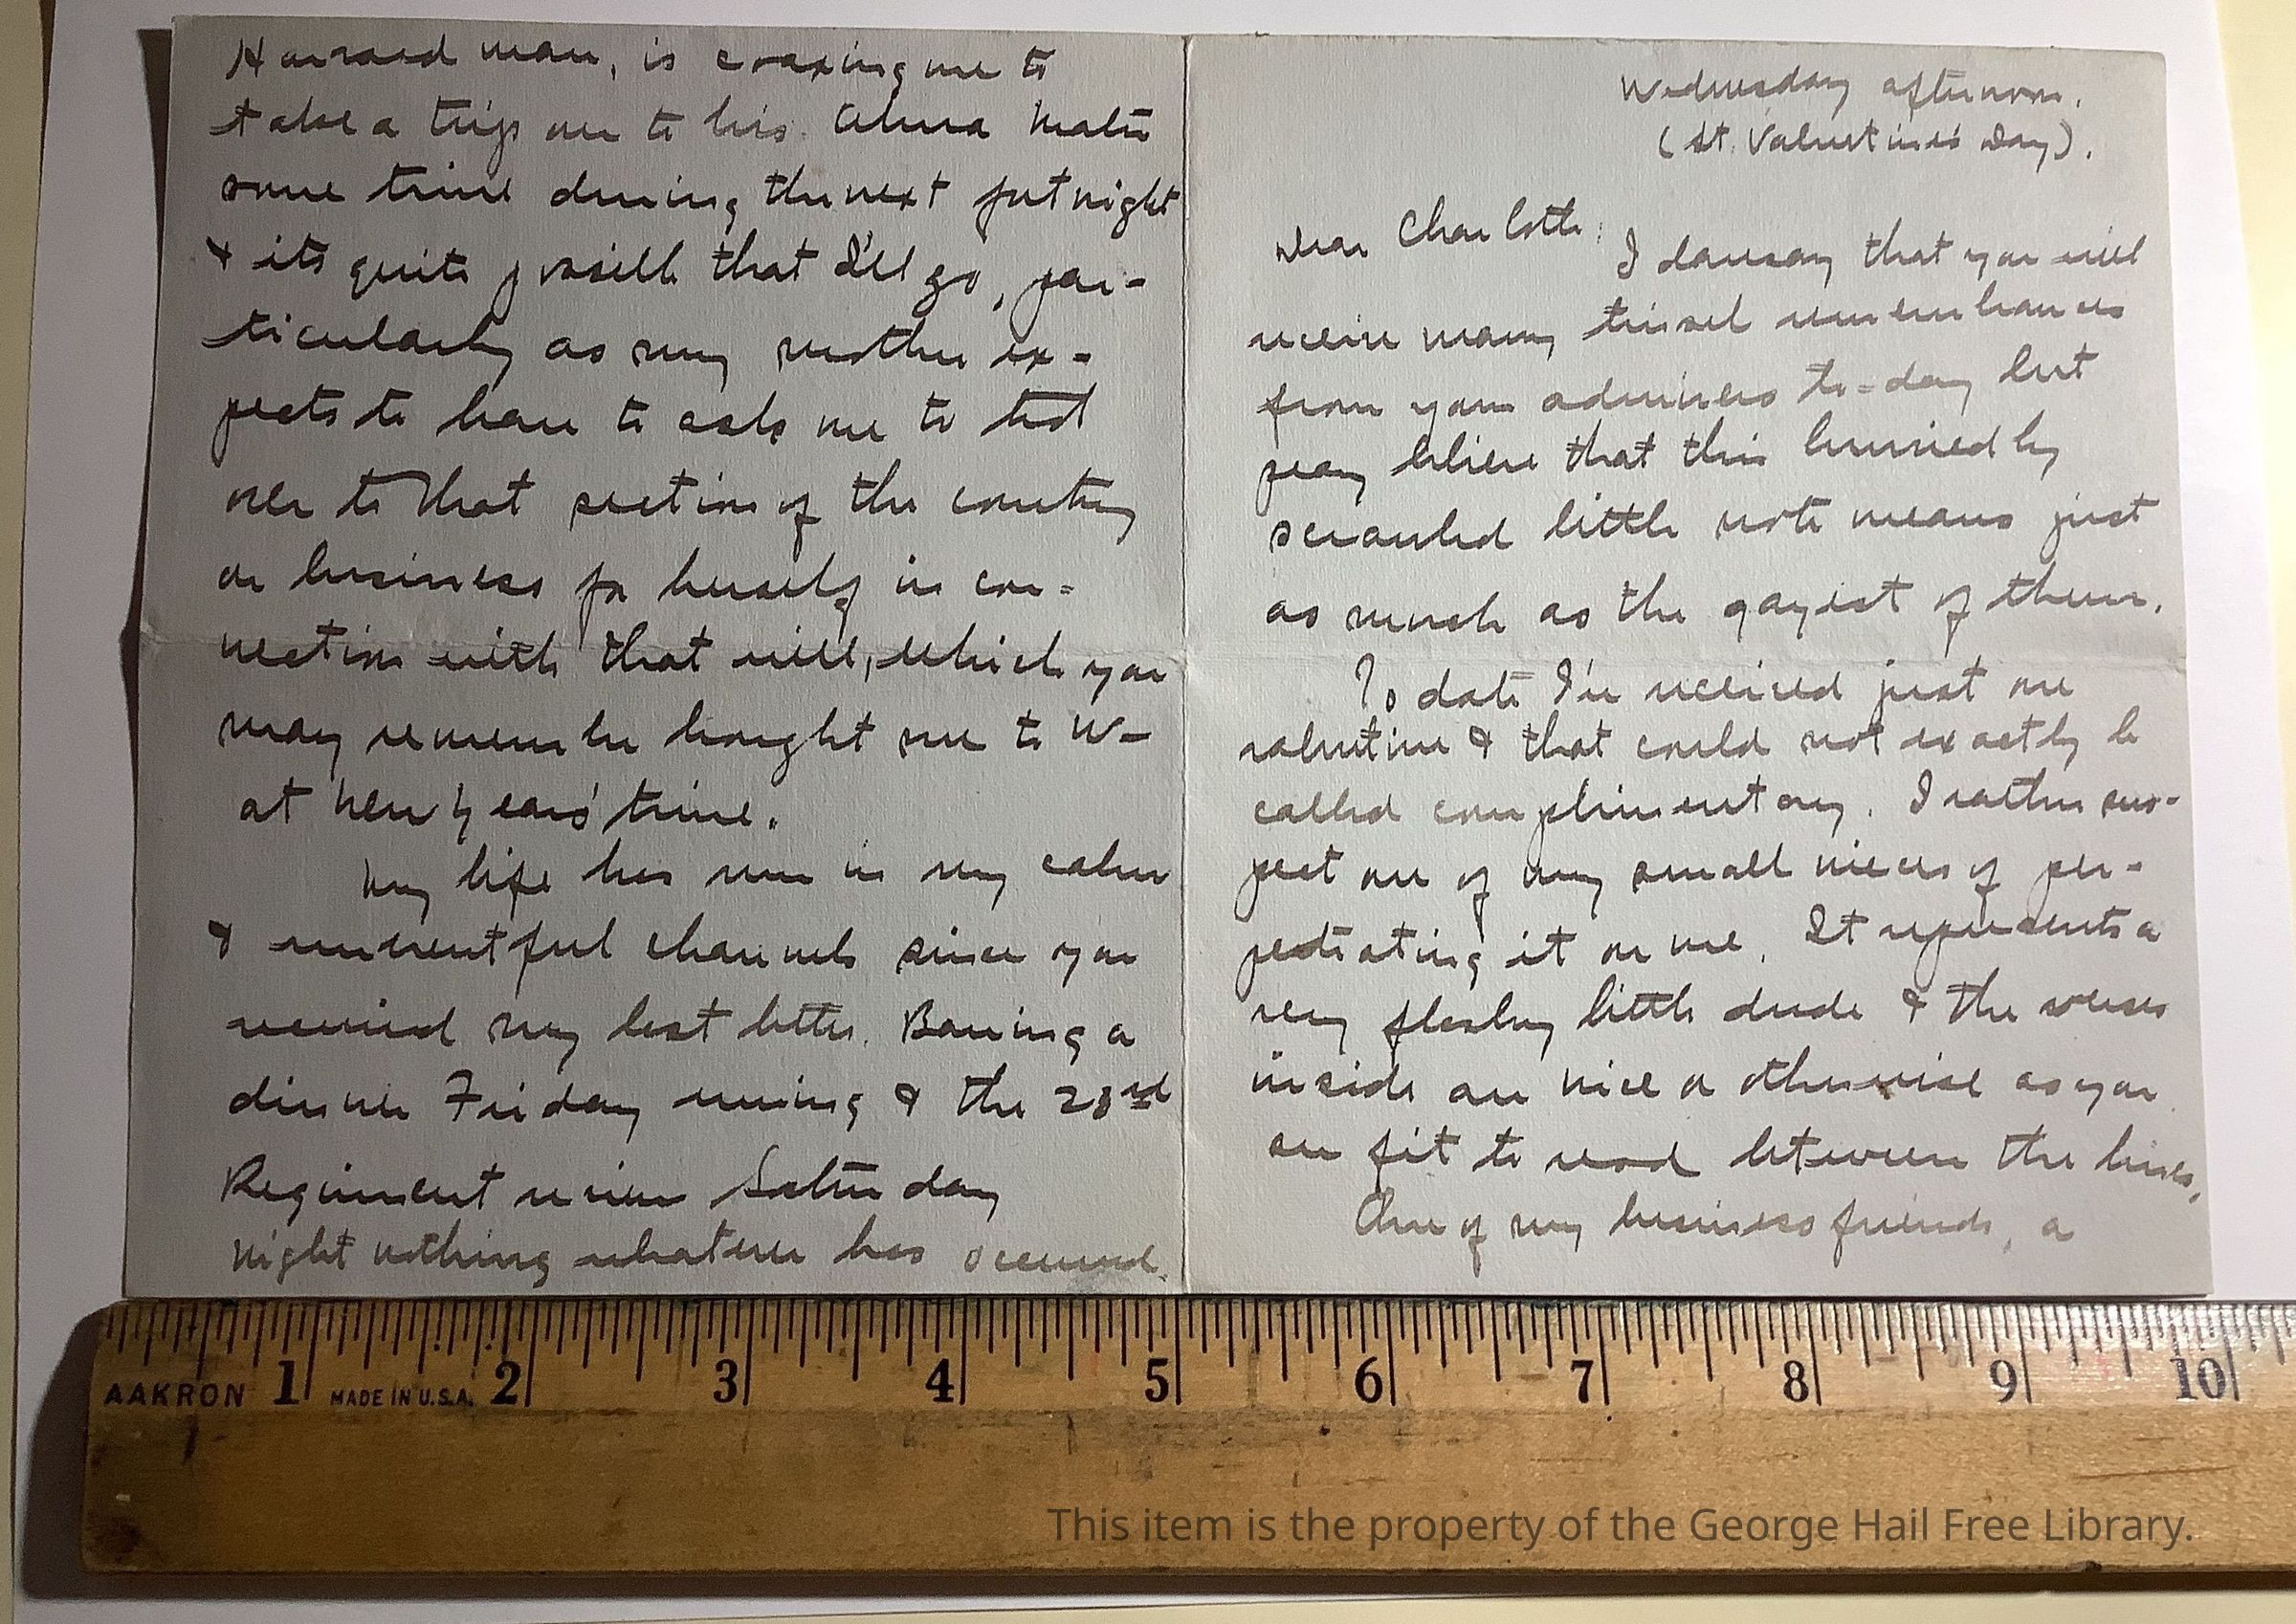 Wednesday afternoon.
(St. Valentine's Day).
Dear Charlotte:
I daresay that you will
receive many tinsel remembrances
from your admirers to-day but
pray believe that this hurriedly
scrawled little note means just
as much as the gayest of them.
To date I've received just one
valentine & that could not exactly be
called complimentary. I rather sus-
pect one of my small nieces of per-
petrating it on me. It represents a
very flashy little dude & the verses
inside are nice or otherwise as you
see fit to read between the lines.
One of my business friends, a
Harvard man, is coaxing me to
take a trip over to his Alma Mater
some time during the next fortnight
& its quite possible that I'll go, par-
ticularly as my mother ex-
pects to have to ask me to trot
over to that section of the country
on business for herself in con-
nection with that will, which you
may remember brought me to W-
at New Years' time.
My life has run in very calm
& uneventful channels since you
received my last letter. Barring a
dinner Friday evening & the 23rd
Regiment review Saturday
night nothing whatever has occurred.
AAKRON 1 MADE IN U.S.A. 2 3 4 5 6 7 8 9 10
This item is the property of the George Hail Free Library.